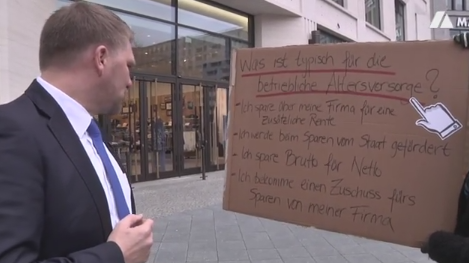 Was ist typisch für die
betriebliche Altersvorsorge?
- Ich spare über meine Firma für eine
zusätzliche Rente
- Ich werde beim Sparen vom Staat gefördert
- Ich spare Brutto für Netto
- Ich bekomme einen Zuschuss fürs
Sparen von meiner Firma